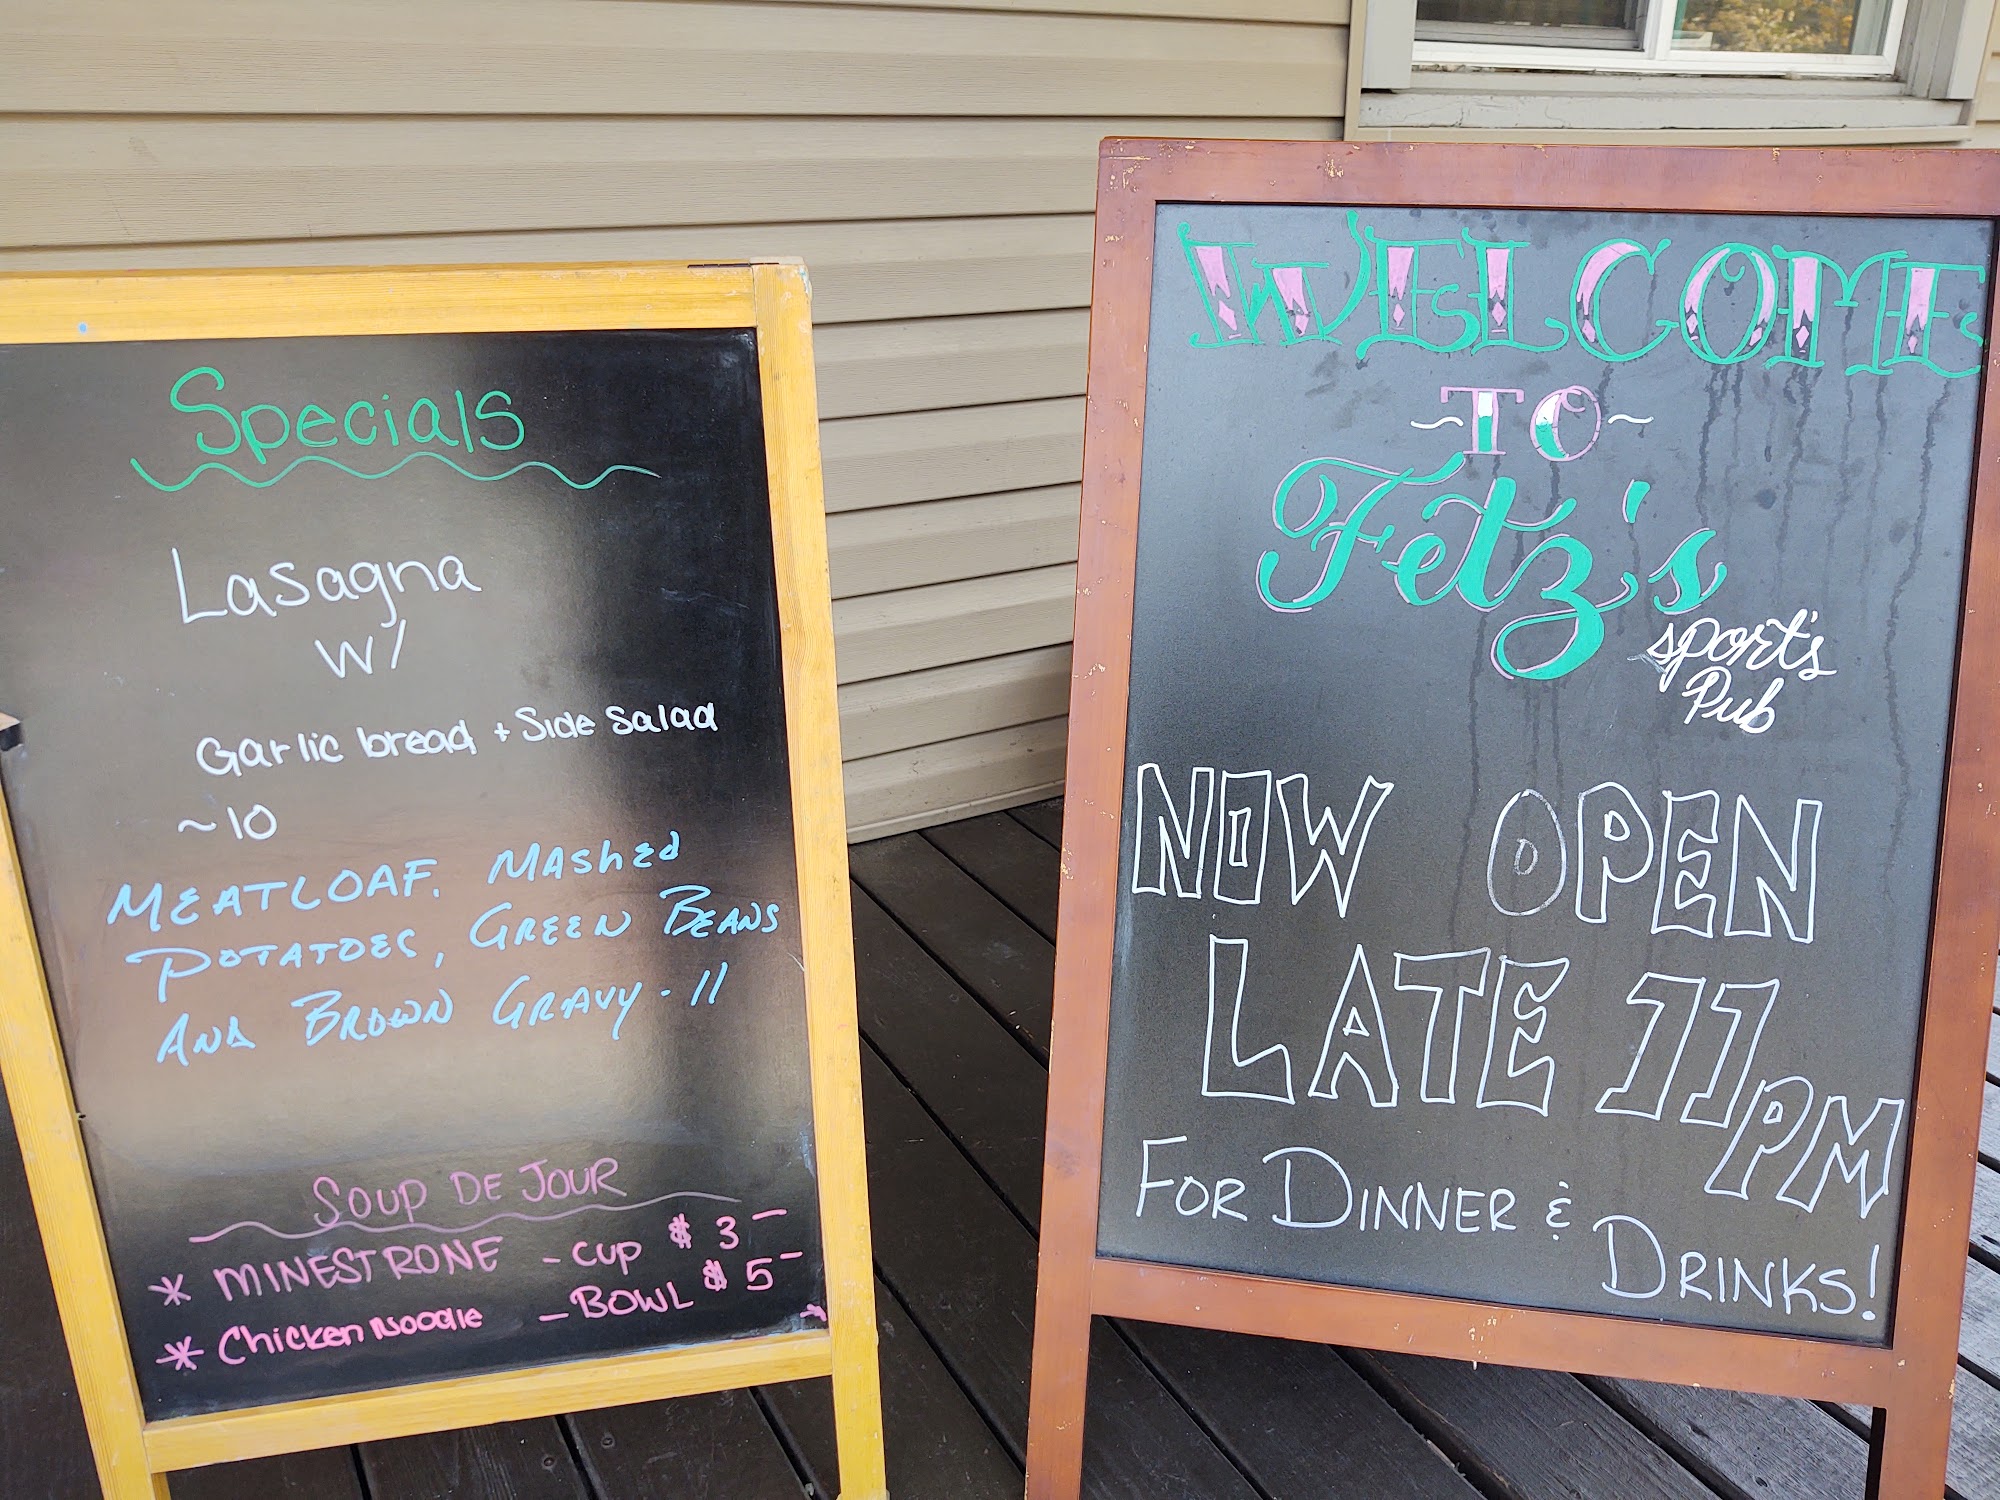 Specials
Lasagna
w/
Garlic bread + Side Salad
~10
MEATLOAF, MASHED
POTATOES, GREEN BEANS
AND BROWN GRAVY - 11
SOUP DE JOUR
* MINESTRONE - CUP $ 3 -
* Chicken Noodle - BOWL $ 5 -
WELCOME
~TO~
Fetz's
sport's
Pub
NOW OPEN
LATE 11PM
FOR DINNER &
DRINKS!